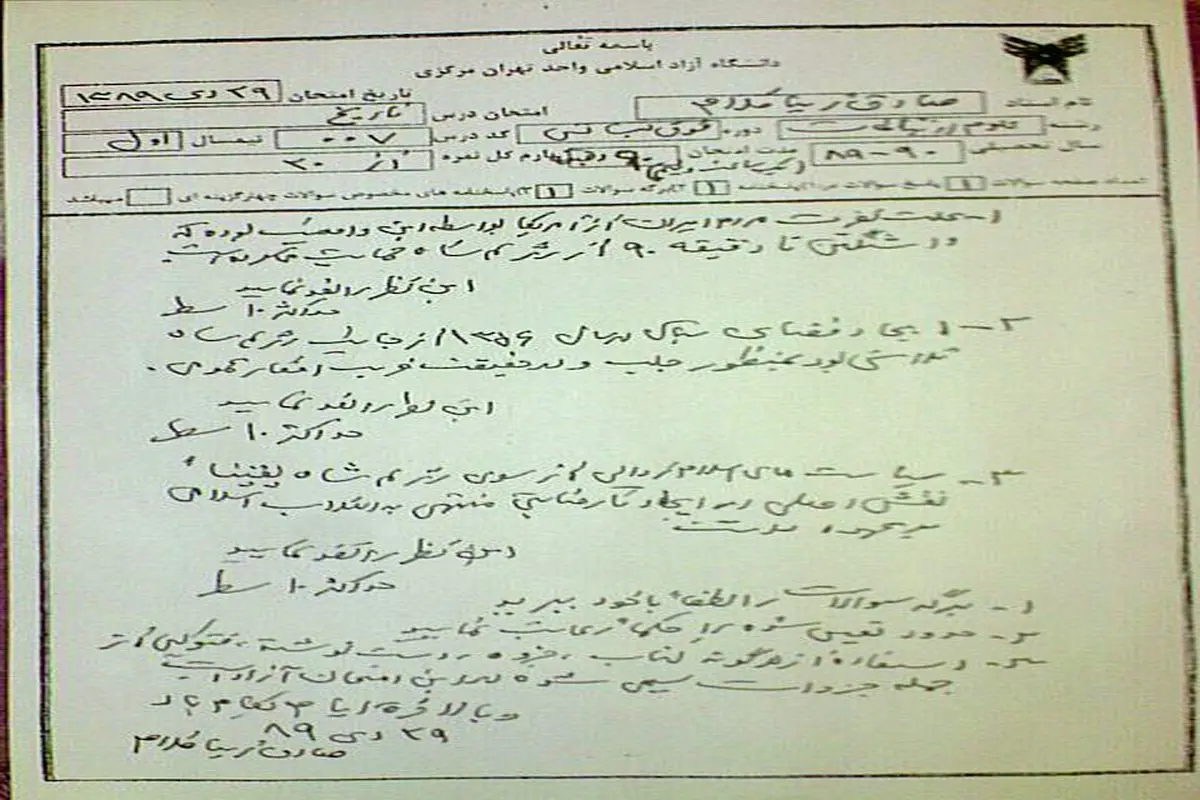 باسمه تعالی
دانشگاه آزاد اسلامی واحد تهران مرکزی
تاریخ امتحان ۲۹ دی ۱۳۸۹
نام استاد صادق زیباکلام امتحان درس تاریخ
رشته علوم ارتباطات دوره فوق لیسانس کد درس ۰۰۷ نیمسال اول
سال تحصیلی ۹۰-۸۹ مدت امتحان ۹۰ دقیقه کل نمره از ۲۰
تعداد صفحه سوالات ۱ پاسخ سوالات در ۱پاسخنامه ۱ ۲برگه سوالات ۱ ۳پاسخنامه های مخصوص سوالات چهارگزینه ای میباشد
۱- علت نفرت مردم ایران از امریکا بواسطه این واقعیت بوده که
واشنگتن تا دقیقه ۹۰ از رژیم شاه حمایت
این نظر را نقد نمایید
حداکثر ۱۰ سطر
۲- ایجاد فضای درسال ۱۳۵۶ از جانب رژیم شاه
تلاشی بود بمنظور جلب و درحقیقت فریب افکار عمومی.
این نظر را نقد نمایید
حداکثر ۱۰ سطر
۳- سیاست های اسلام زدائی از سوی رژیم شاه یقیناً
نقش اصلی در ایجاد نارضایتی منتهی به انقلاب اسلامی
برعهده داشت
این نظر را نقد نمایید
حداکثر ۱۰ سطر
۱- برگه سوالات را لطفاً باخود ببرید
۲- حدود تعیین شده را حتماً رعایت نمایید
۳- استفاده از هرگونه کتاب، جزوه، دست نوشته، از
جمله جزوات سیمی شده در این امتحان آزاد است
وبالاخره ایام بکام باد
۲۹ دی ۸۹
صادق زیباکلام